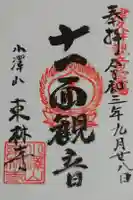 奉拝 令和三年九月廿八日
十一面観音
小澤山 東林寺